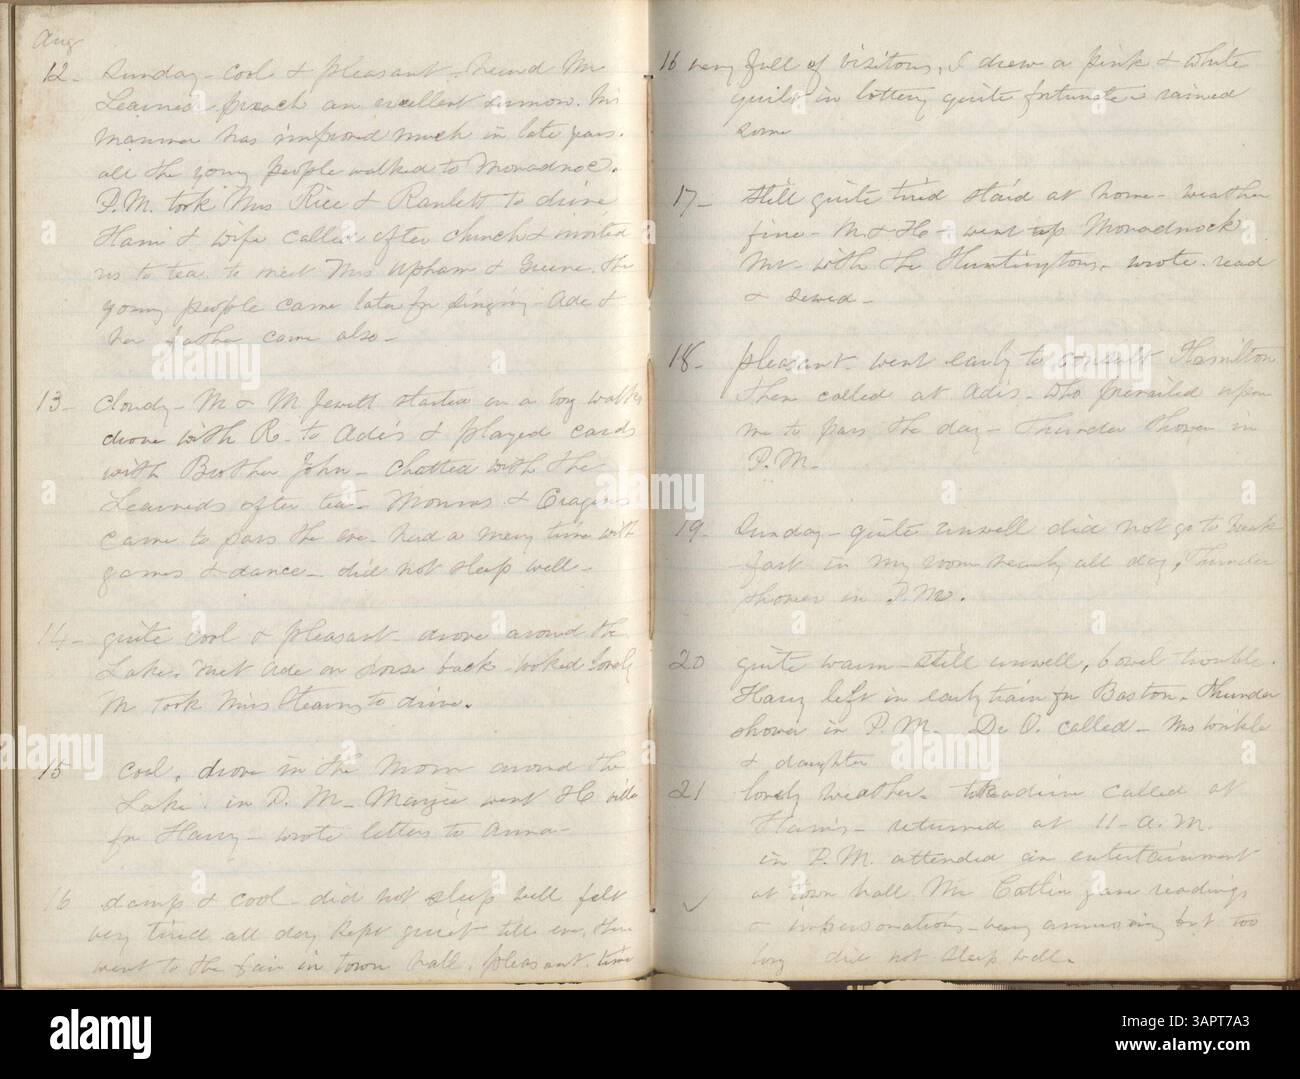 Aug
12 - Sunday - cool & pleasant - heard Mr
Learned preach an excellent sermon. his
manner has improved much in late years.
all the young people walked to Monadnoc.
P.M. took Mrs Rice & Ranlett to drive
Ham & wife called after church & invited
us to tea to meet Mrs Upham & Greene. the
young people came later for singing - Ade &
her father came also -
13 - Cloudy - M & M Jewett started on a long walk
drove with R. to Ade's & played cards
with Brother John - Chatted with the
Learneds after tea - Monroes & Cragins
came to pass the eve - had a merry time with
games & dance - did not sleep well -
14 - quite cool & pleasant - drove around the
Lake. met Ade on horse back - looked lovely
M took Miss Stearns to drive.
15 cool, drove in the morn around the
Lake. in P.M - Margie went H ville
for Harry - wrote letters to Anna -
16 damp & cool - did not sleep well felt
very tired all day kept quiet till eve, then
went to the fair in town hall. pleasant. time
16 very full of visitors, I drew a pink & white
quilt in lottery quite fortunate - rained
some
17 - still quite tired staid at home - weather
fine - M & H - went up Monadnock
Mt - with the Huntingtons. wrote. read
& sewed -
18 - pleasant - went early to consult Hamilton
then called at Ade's - who prevailed upon
me to pass the day - Thunder shower in
P.M.
19 - Sunday - quite unwell did not go to break
-fast in my room nearly all day, Thunder
shower in P.M.
20 quite warm - still unwell, bowel trouble.
Harry left in early train for Boston. Thunder
shower in P.M. Dr O. called - Mrs Winkle
& daughter
21 lovely weather. called at
Ham's - returned at 11 - A.M.
in P.M. attended an entertainment
at town hall Mr Catlin gave readings
& impersonations - very amusing but too
long did not sleep well.
alamy
Image ID: 3APT7A3
www.alamy.com